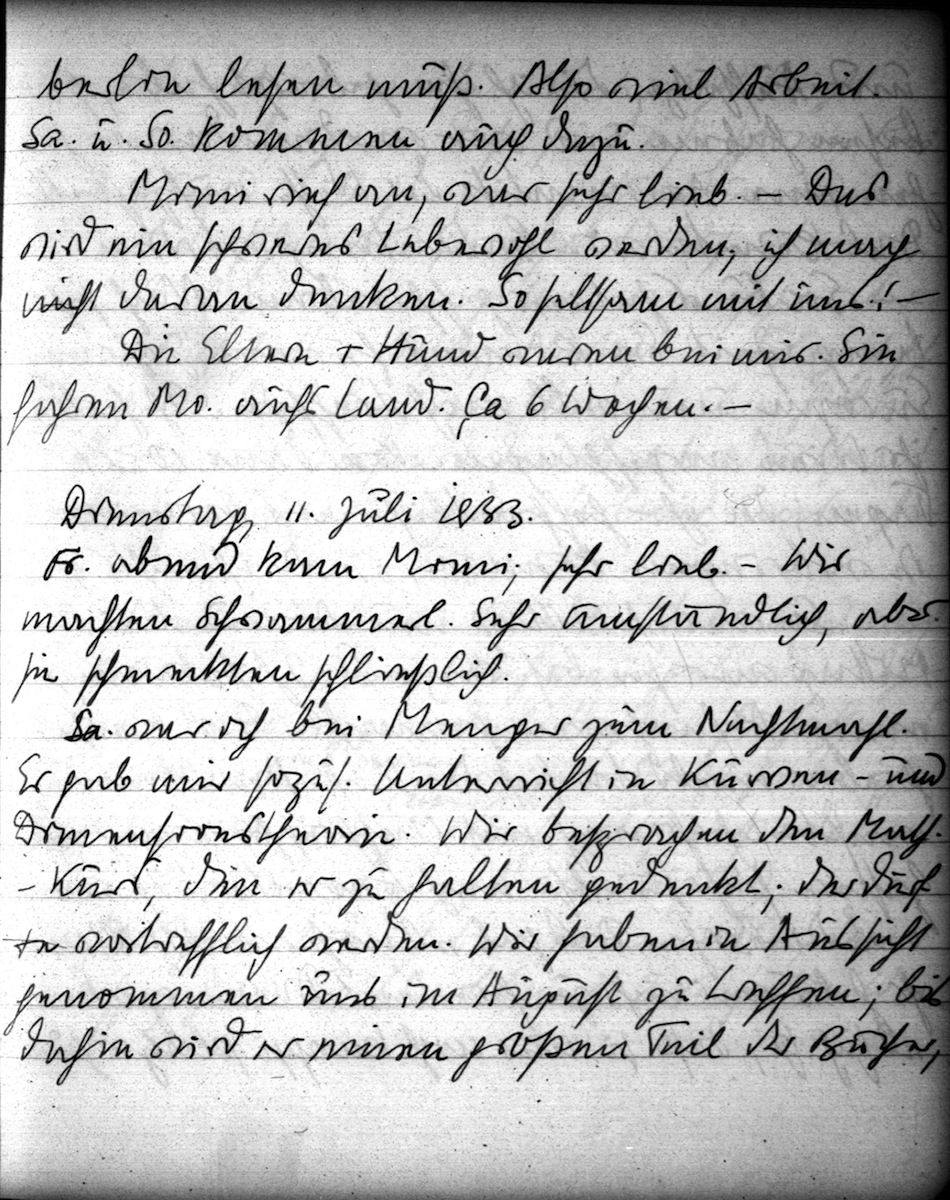 berlin lesen muß. Also viel Arbeit.
Sa. u. So. kommen auch dazu.
Mimi rief an, war sehr lieb. – Das
wird ein schweres Lebewohl werden, ich mag
nicht daran denken. So seltsam mit uns! –
Die Eltern + Hund waren bei mir. Sie
fahren Mo. aufs Land. Ca 6 Wochen. –
Dienstag, 11. Juli 1933.
Fr. abend kam Mimi; sehr lieb. – Wir
machten Schwammerl. Sehr umständlich, aber
sie schmeckten schließlich.
Sa. war ich bei Menger zum Nachtmahl.
Er gab mir sozus. Unterricht in Kurven- und
Dimensionstheorie. Wir besprachen den Math.
-Kurs, den er zu halten gedenkt; der dürf
te vortrefflich werden. Wir haben in Aussicht
genommen uns im August zu treffen; bis
dahin wird er einen großen Teil der Bücher,